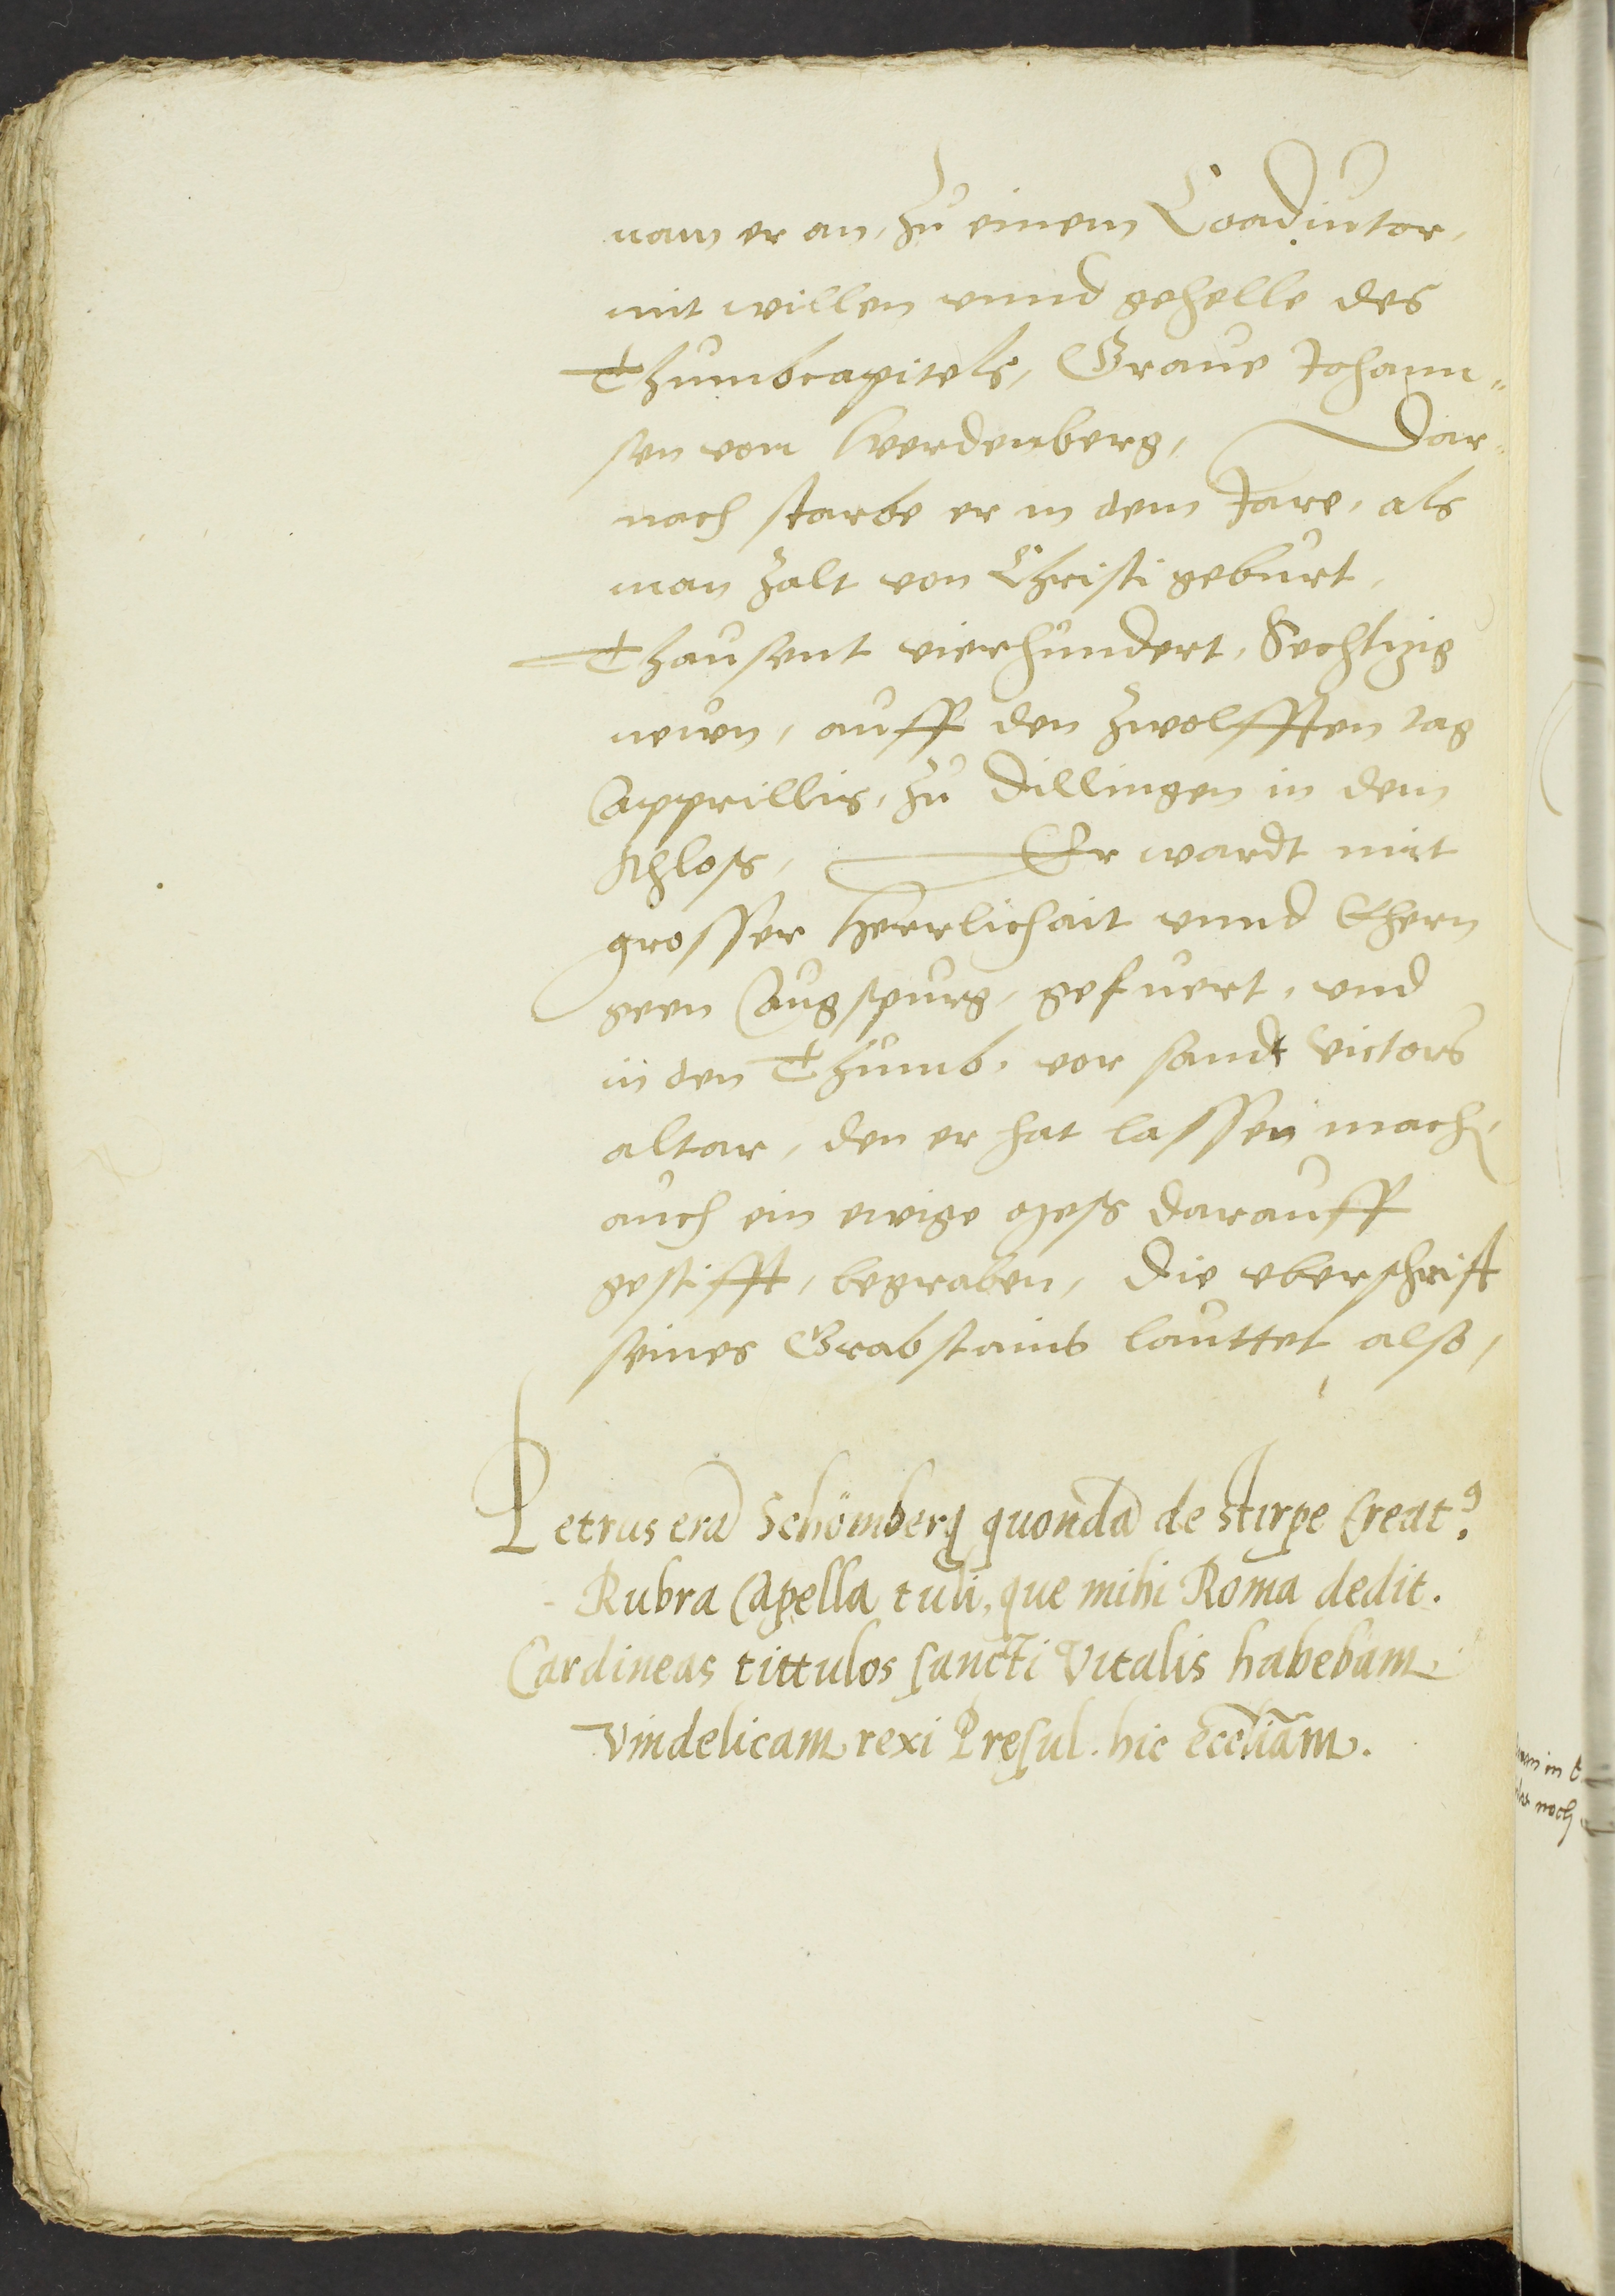 nam er an, zu einem Coadiutor,
mit willen vnnd gehelle des
Thumbcapitels, Graue Johann„
sen vom Werdenberg, Dar„
nach starbe er in dem Jare, als
man zalt von Christi geburt,
Thausent vierhundert, Sechtzig
neun, auff den zwolfften tag
Apprillis, zu Dillingen in dem
schloss, Er wardt mit
grosser Herrlichait vnnd Ehern
geen Augspurg, gefuert, vnd
in den Thumb, vor sandt victors
altar, den er hat lassen mach,
auch ein ewige mess darauff
gestifft, begraben, Die vberschrift
seines Grabstains lauttet also,
Petrus erā Schömberg quondā de stirpe Creat⁹.
Rubra Capella tuli, que mihi Roma dedit.
Cardineas tittulos sancti Vitalis habebam
Vindelicam rexi Presul. hic eccliām.
noch